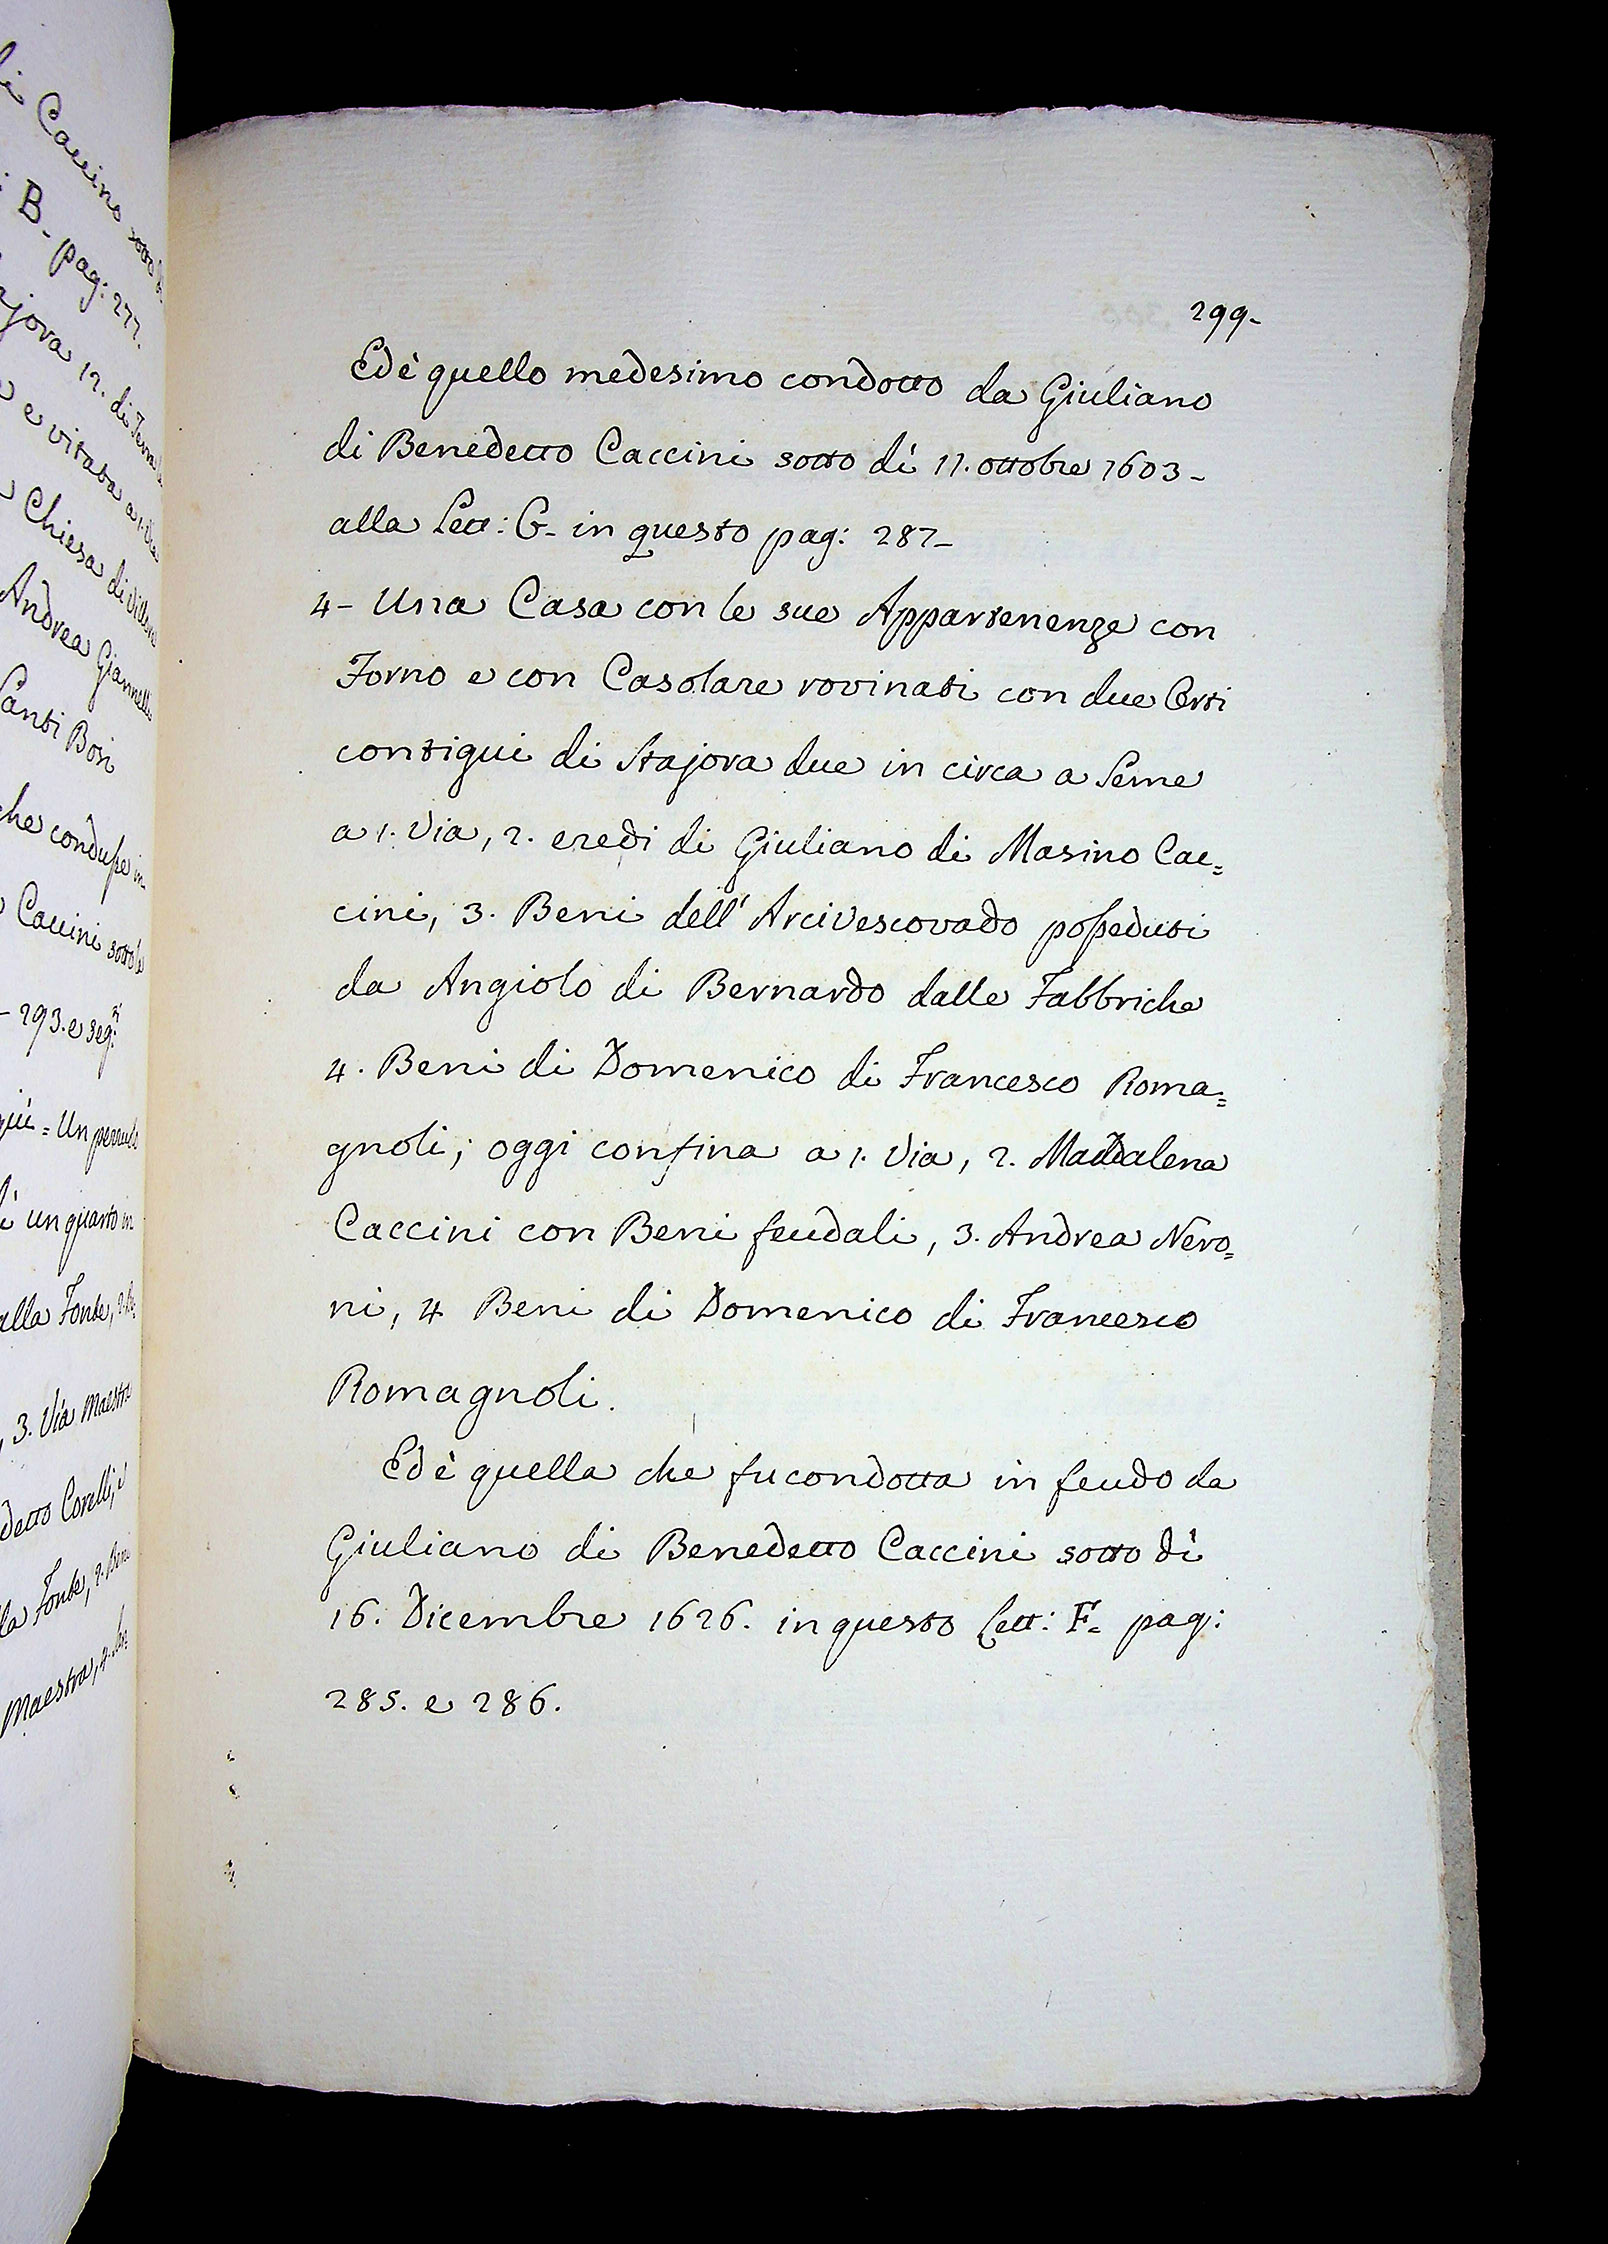 li Caccino sotto
B- pag: 277.
ajora 12. di Terra
e vitata a 1. Via
Chiesa di Villore
Andrea Giannelli
Santi Bosi
che condusse in
Caccini sotto
- 293. e seg:ti
= Un pezzuolo
un quarto in
alla Fonte, 2.
3. Via Maestra
detto Corelli, e
la Fonte, 2. Beni
Maestra, 4.
299-
Ed è quello medesimo condotto da Giuliano
di Benedetto Caccini sotto dì 11. ottobre 1603-
alla Lett: G- in questo pag: 287-
4- Una Casa con le sue Appartenenze con
Forno e con Casolare rovinati con due Orti
contigui di Stajora due in circa a Seme
a 1. Via, 2. eredi di Giuliano di Masino Cac=
cini, 3. Beni dell' Arcivescovado posseduti
da Angiolo di Bernardo dalle Fabbriche
4. Beni di Domenico di Francesco Roma=
gnoli; oggi confina a 1. Via, 2. Maddalena
Caccini con Beni feudali, 3. Andrea Nero=
ni, 4 Beni di Domenico di Francesco
Romagnoli.
Ed è quella che fu condotta in feudo da
Giuliano di Benedetto Caccini sotto dì
16. Dicembre 1626. in questo Lett: F= pag:
285. e 286.